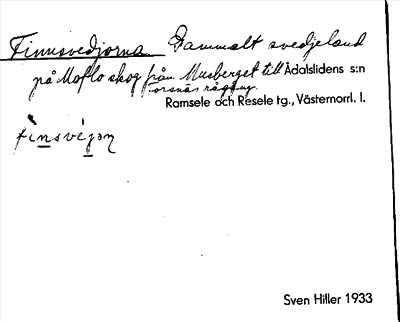 Finnsvedjorna Gammalt svedjeland
på Moflo skog från Musberget till Ådalslidens s:n
orsnäs rågång.
Ramsele och Resele tg., Västernorrl. l.
finsvéjọn
Sven Hiller 1933